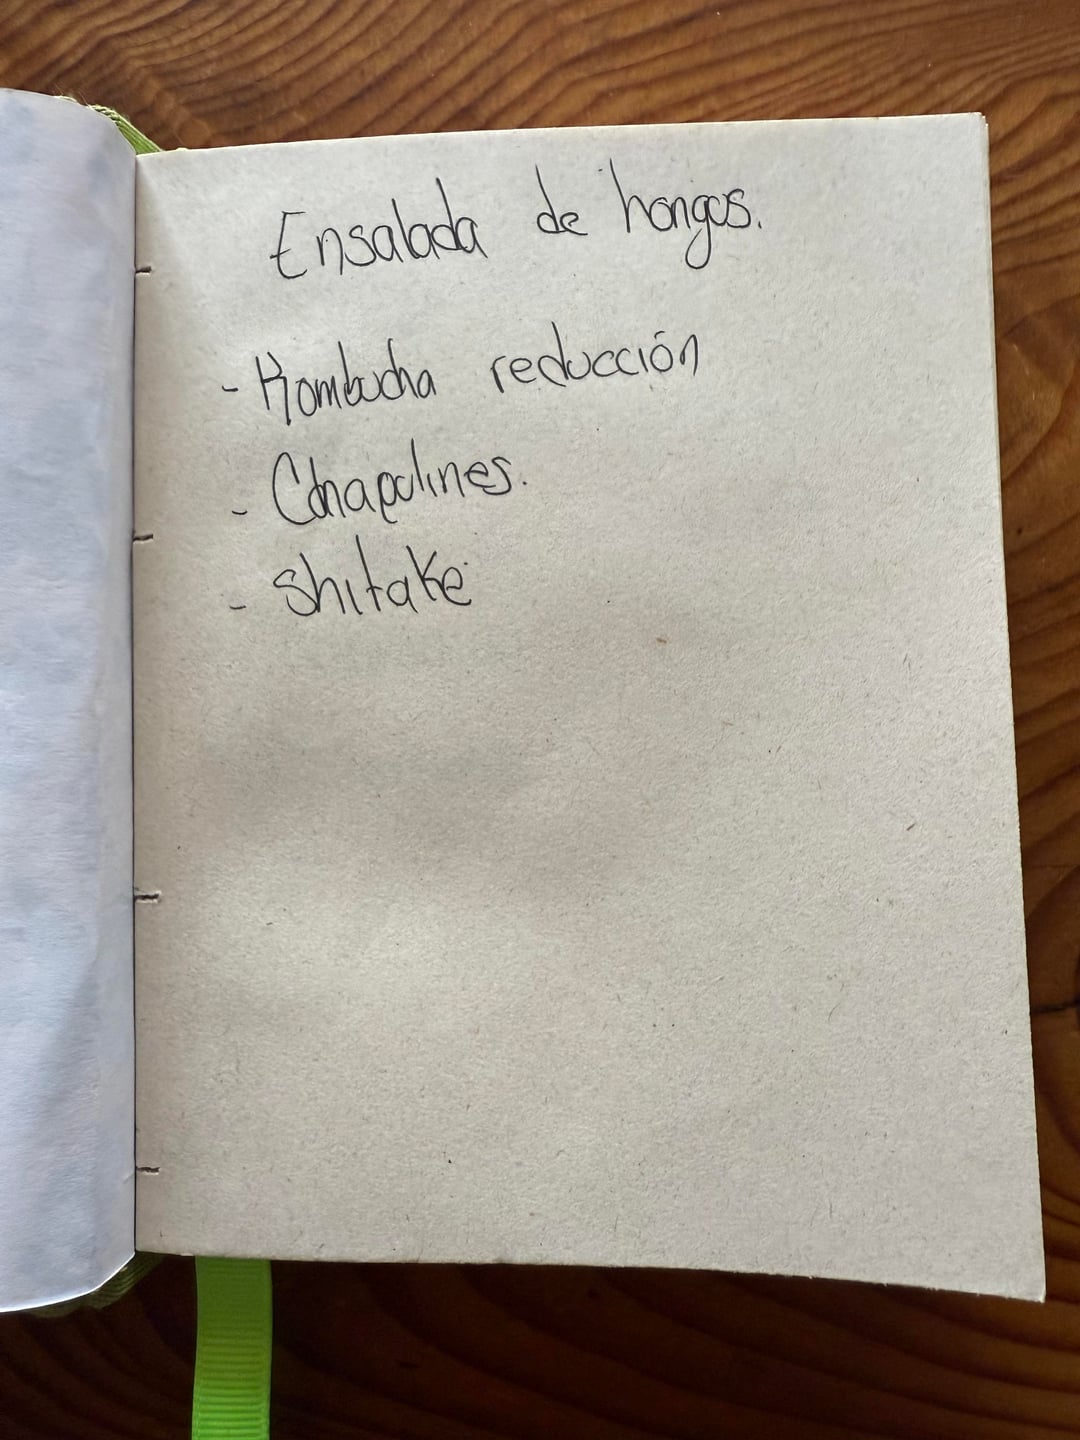 Ensalada de hongos.
- Kombucha reducción
- Chapulines.
- Shitake